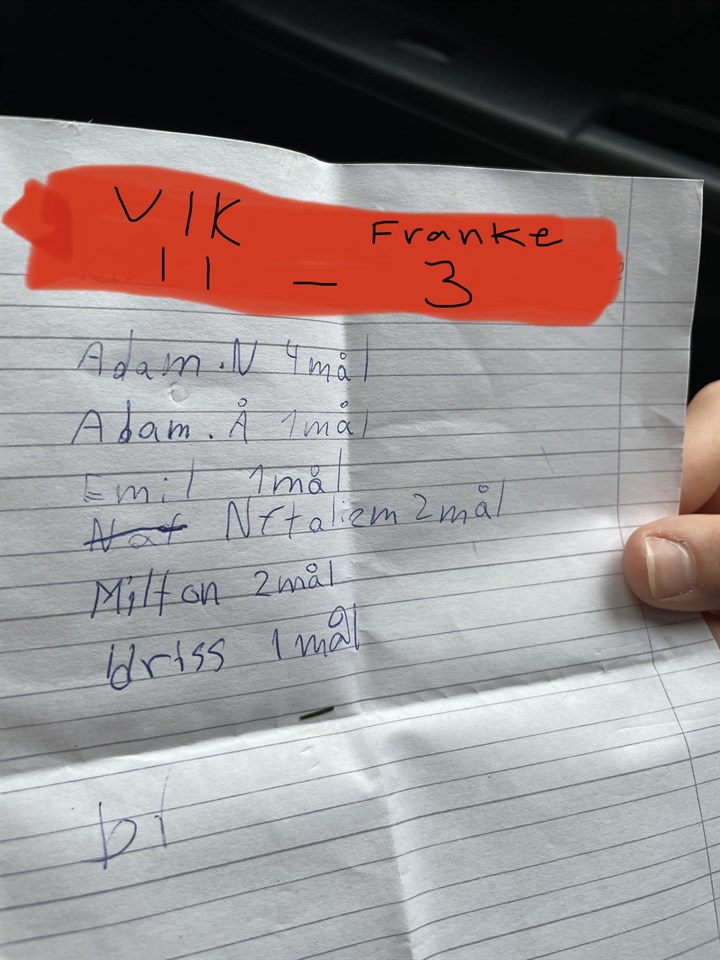 VIK Franke
11 - 3
Adam.N 4mål
Adam.Å 1mål
Emil 1mål
Nat Nftaliem 2mål
Milton 2mål
Idriss 1mål
bl